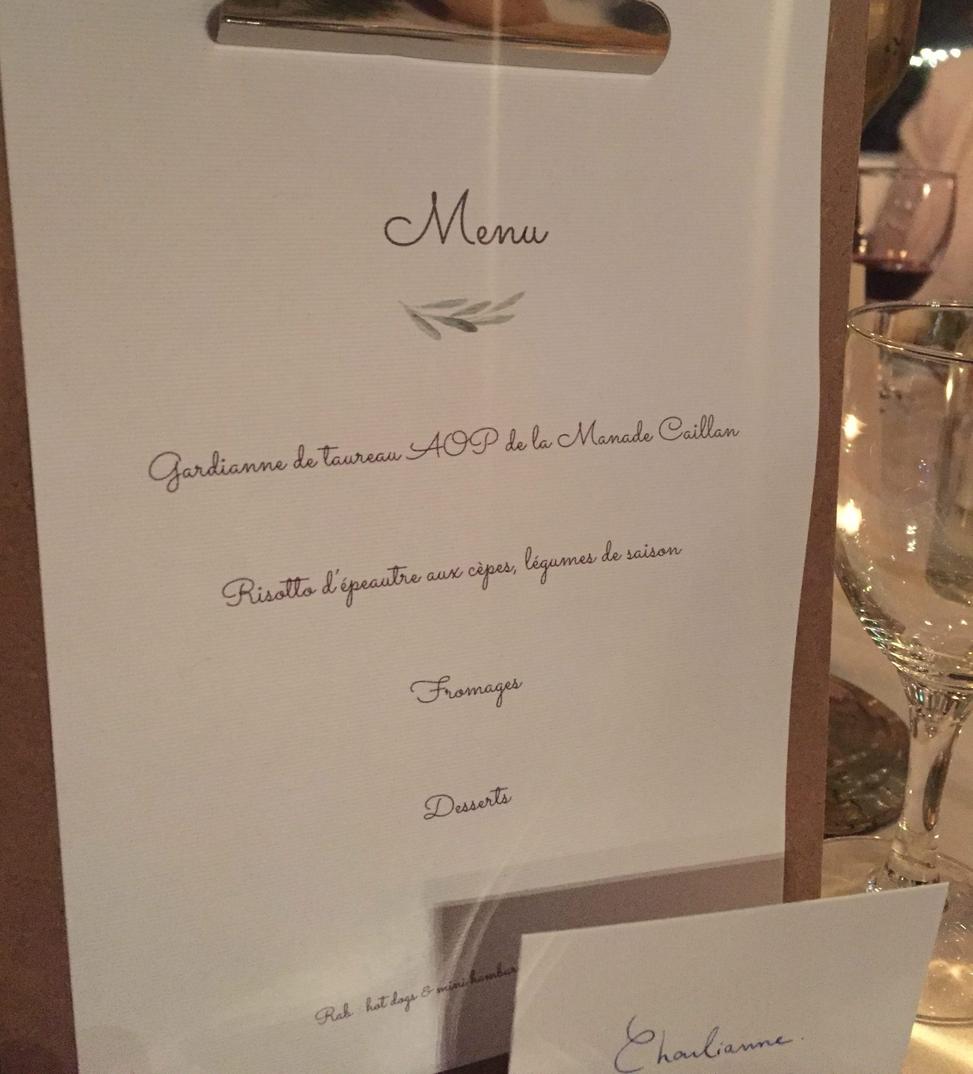 Menu
Gardianne de taureau AOP de la Manade Caillan
Risotto d'épeautre aux cèpes, légumes de saison
Fromages
Desserts
Rab hot dogs & mini
Charlianne.